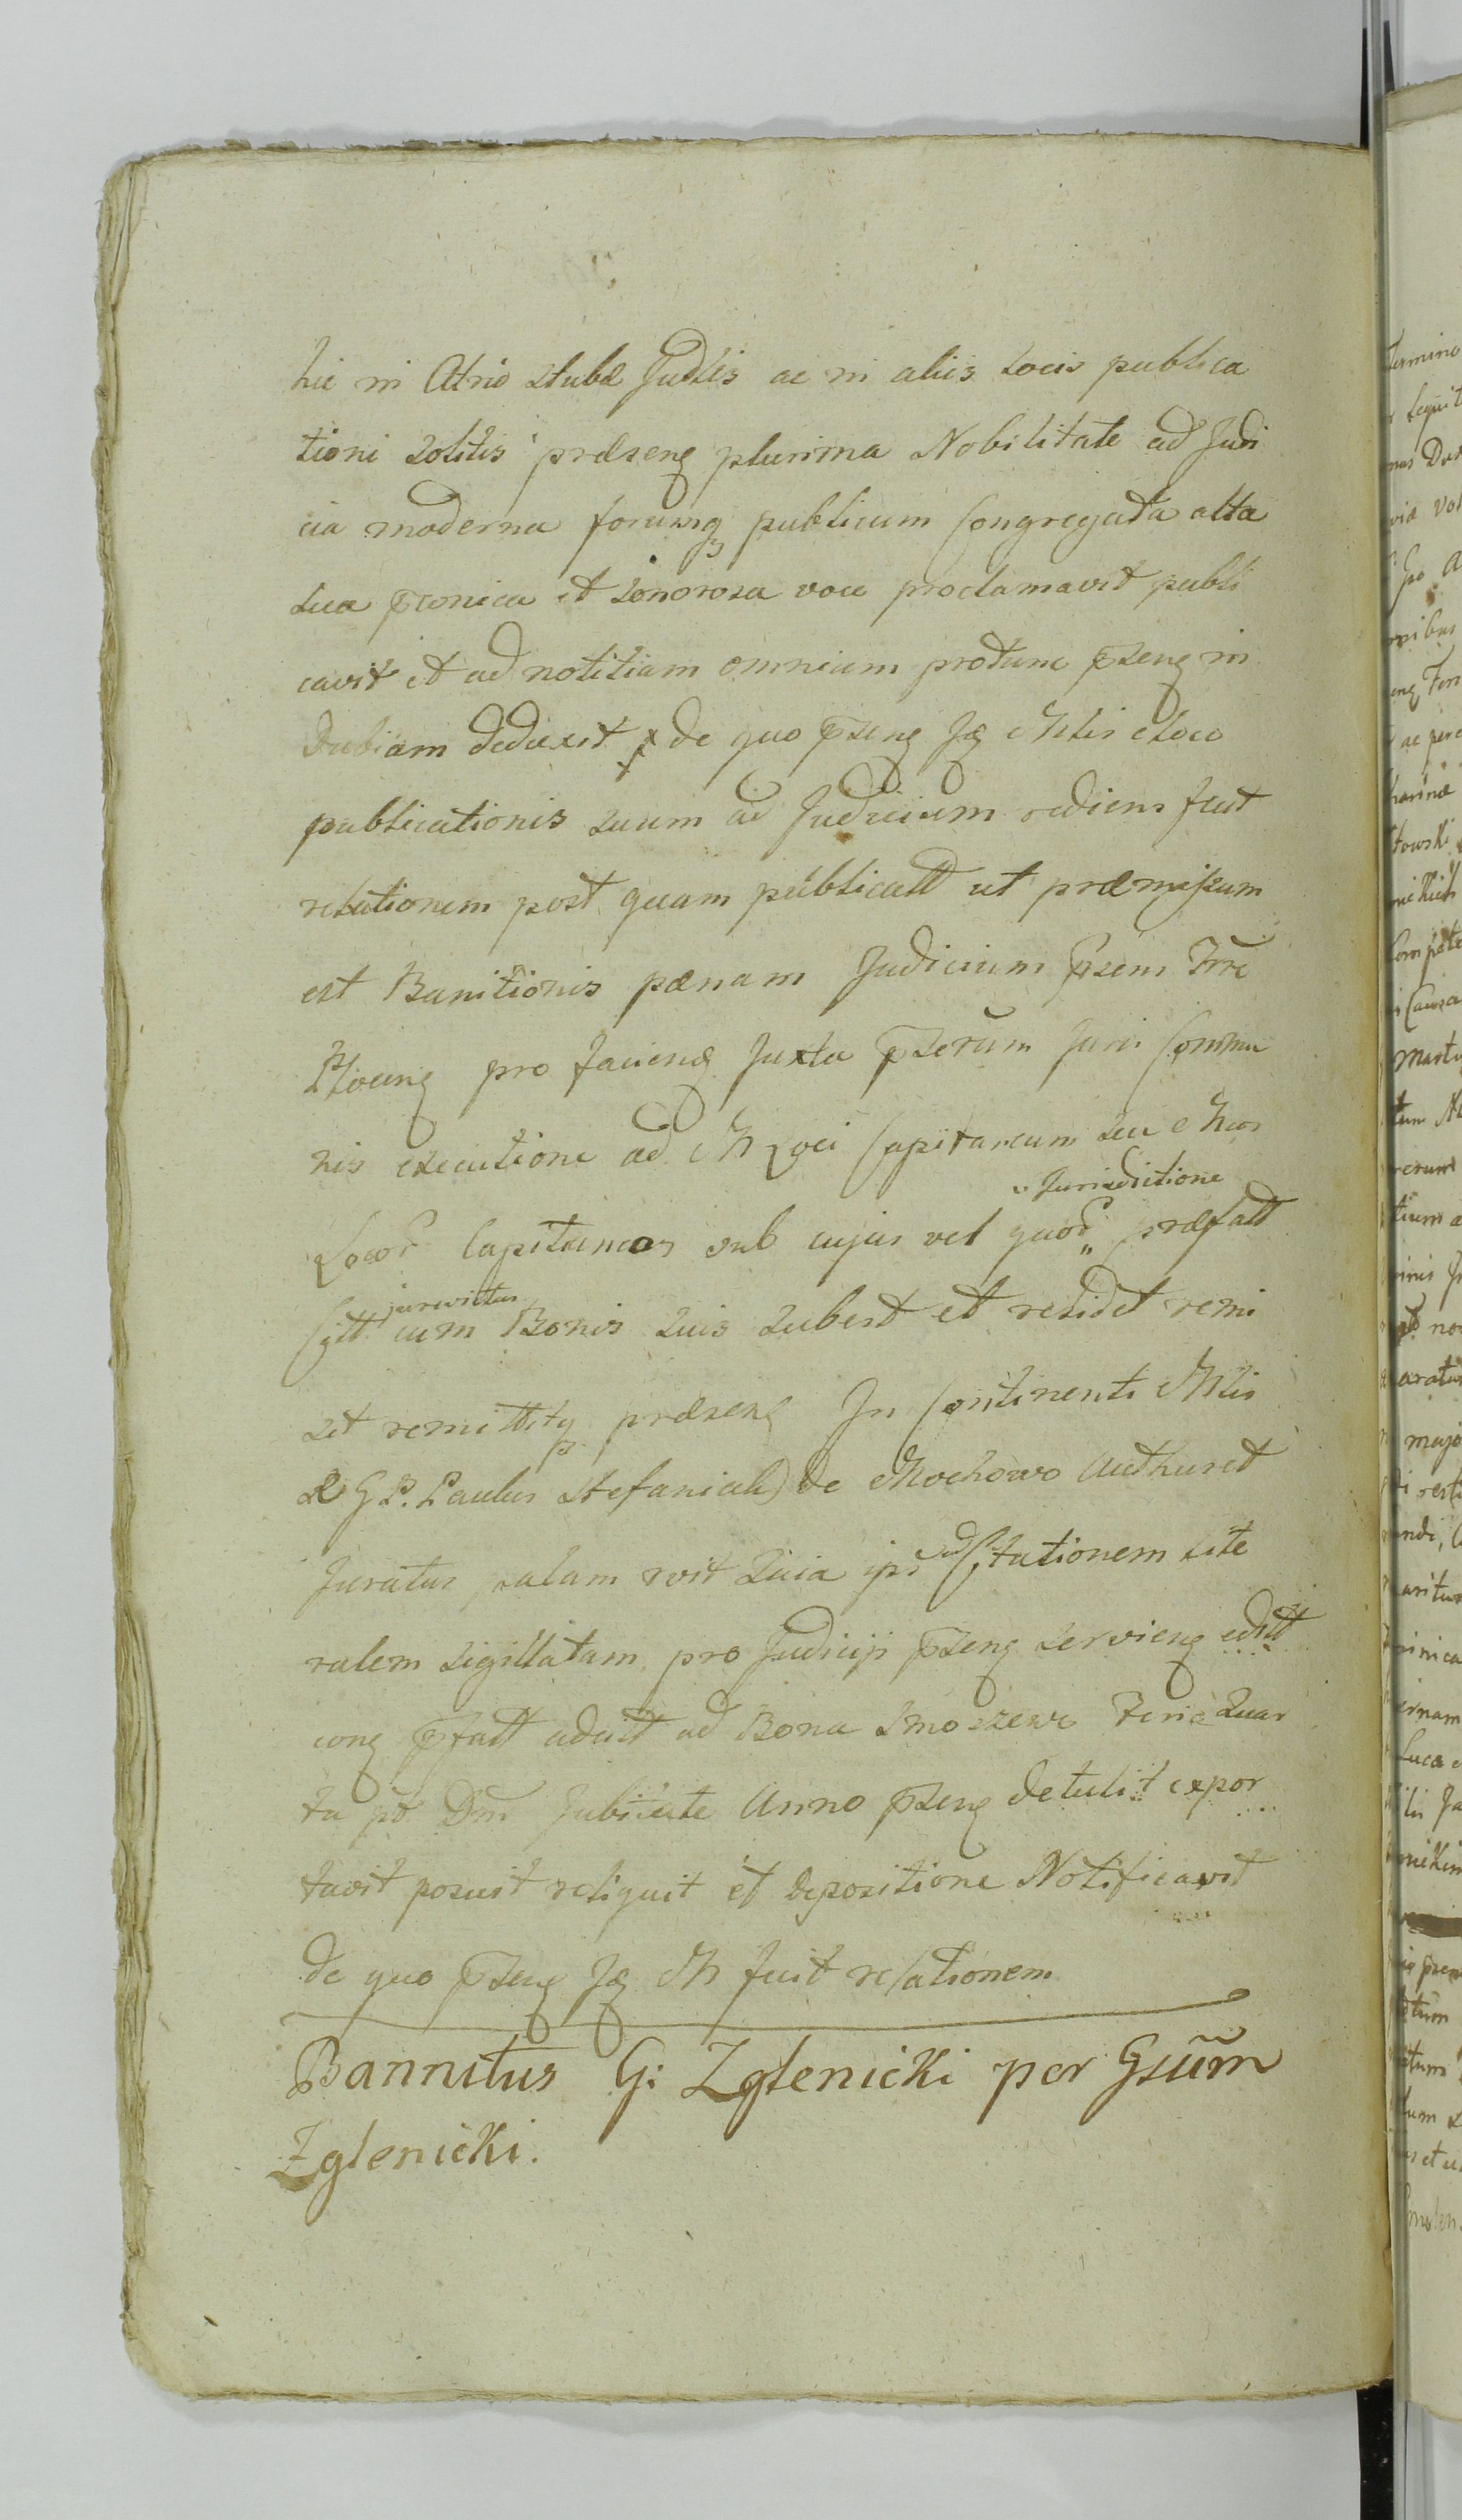 hic in Atrio stubæ Judlis ac in aliis locis publica
tioni solitis præseng plurima Nobilitate ad Judi
cia moderna forumq publicum Congregata alta
sua pconica et sonorosa voce proclamavit publi
cavit et ad notitiam omnium protunc pseng in
dubiam deduxit de quo pseng Jg Mlis eloco
publicationis suum ad Judicium rediens fecit
relationem post quam publicatt ut præmissum
est Banitionis pænam Judicium psens Trre
Ploceng pro facieng Juxta pserum Juris Commu
nis executione ad M Loci Capitaneum seu Meos
Locor Capitaneos sub cujus vel quor Jurisditione præfatt
Citt jurevictus cum Bonis suis subest et residet remi
sit remittitq præseng In Continenti Mlis
& G P. Paulus Stefaniak de Mochowo Authuret
Juratus palam rvit Quia ips Citationem lite
ralem sigillatam pro Judicij pseng servieng editt
cong pfatt aduit ad Bona Smoszewo Feria Quar
ta pt Dm Jubilate Anno pseng detulit expor
tavit posuit reliquit et depositione Notificavit
de quo pseng Jg M fecit relationem
Bannitus G: Zglenicki per Gsum
Zglenicki.